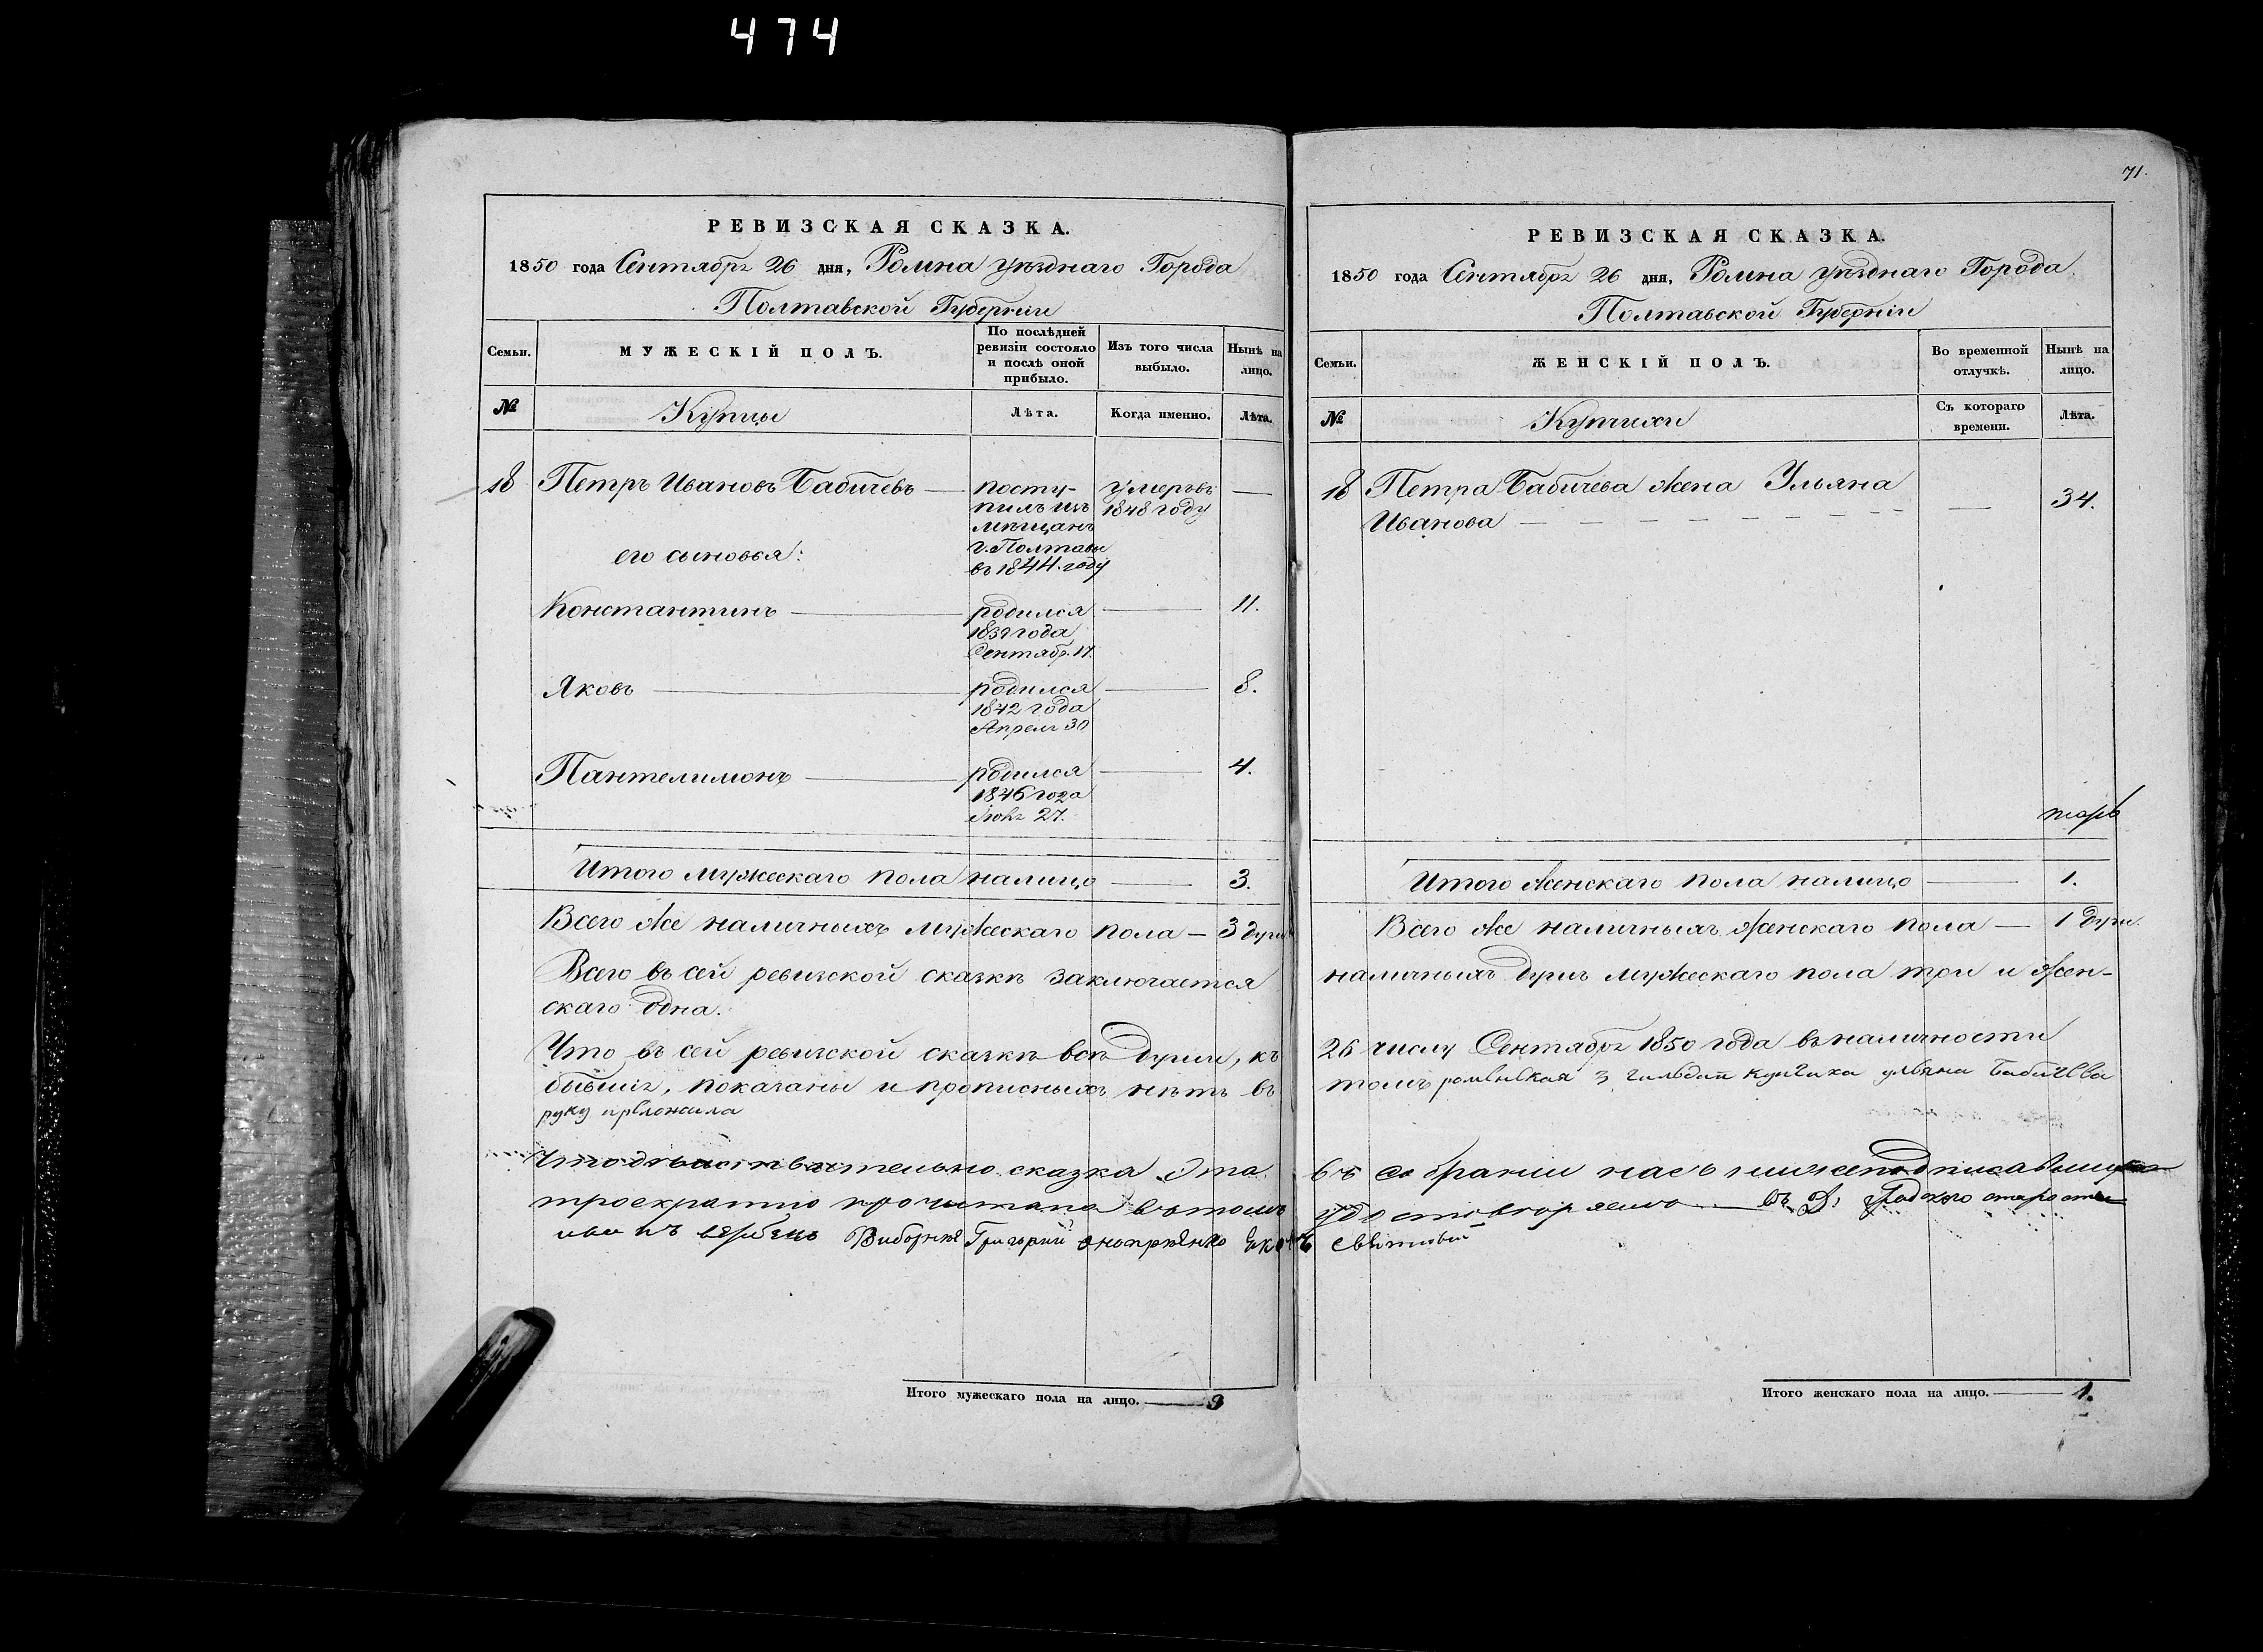 474
РЕВИЗСКАЯ СКАЗКА.
1850 года Сентября 26 дня, Ромна уѣзднаго Города
Полтавской Губерніи
Семьи.
МУЖЕСКІЙ ПОЛЪ.
По послѣдней
ревизіи состояло
и послѣ оной
прибыло.
Изъ того числа
выбыло.
Нынѣ на
лицо.
№
Купцы
Лѣта.
Когда именно.
Лѣта.
18 Петръ Ивановъ Бабичевъ — посту-
пилъ изъ
мѣщанъ
г. Полтавы
въ 1844. году
умеръ въ
1848 году
—
его сыновья:
Константинъ — родился — 11.
1839 года
Сентябр. 17.
Яковъ — родился — 8.
1842 года
Апреля 30
Пантелимонъ — родился — 4.
1846 года
27.
Итого мужескаго пола налицо — 3.
Всего же наличныхъ мужескаго пола — 3 души
Всего въ сей ревизской сказкѣ заключается
скаго одна.
Что въ сей ревизской сказкѣ всѣ души, къ
бывшія, показаны и прописныхъ нѣтъ въ
руку приложила
сказка эта
троекратно прочитана въ томъ
Григорий
Итого мужескаго пола на лицо. — 3
71.
РЕВИЗСКАЯ СКАЗКА.
1850 года Сентября 26 дня, Ромна уѣзднаго Города
Полтавской Губерніи
Семьи.
ЖЕНСКІЙ ПОЛЪ.
Во временной
отлучкѣ.
Нынѣ на
лицо.
№
Купчихи
Съ котораго
времени.
Лѣта.
18 Петра Бабичева жена Ульяна — 34.
Иванова — — — — — — — —
Итого женскаго пола налицо — 1.
Всего же наличныхъ женскаго пола — 1 душ.
наличныхъ душъ мужескаго пола три и жен-
26 числу Сентября 1850 года въ наличности
томъ роменская 3 гильдии купчиха ульяна Бабичева
въ собрании насъ нижеподписавшихся
удостоверяемо — старосты
Итого женскаго пола на лицо. — 1.